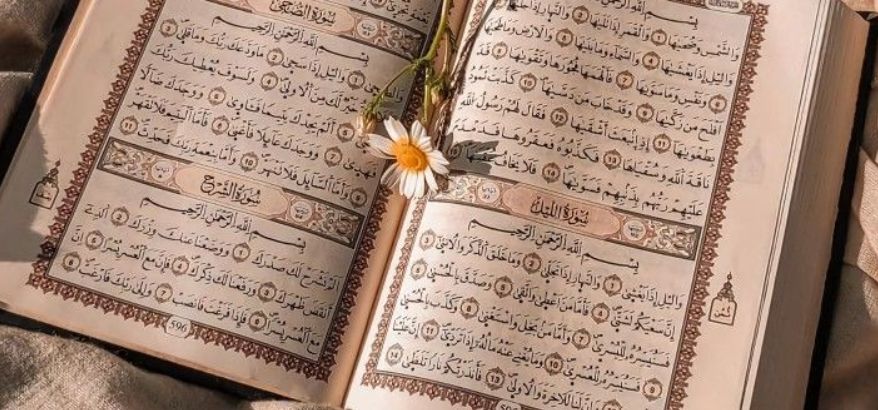 سُورَةُ الضُّحَىٰ
بِسْمِ ٱللَّهِ ٱلرَّحْمَٰنِ ٱلرَّحِيمِ
وَٱلَّيْلِ إِذَا سَجَىٰ ٢ مَا وَدَّعَكَ رَبُّكَ وَمَا قَلَىٰ ٣
لَّكَ مِنَ ٱلْأُولَىٰ ٤ وَلَسَوْفَ يُعْطِيكَ رَبُّكَ
٥ أَلَمْ يَجِدْكَ يَتِيمًا فَـَٔاوَىٰ ٦ وَوَجَدَكَ ضَآلًّا
فَهَدَىٰ ٧ وَوَجَدَكَ عَآئِلًا فَأَغْنَىٰ ٨ فَأَمَّا ٱلْيَتِيمَ فَلَا تَقْهَرْ
٩ وَأَمَّا ٱلسَّآئِلَ فَلَا تَنْهَرْ ١٠ وَأَمَّا بِنِعْمَةِ رَبِّكَ فَحَدِّثْ ١١
سُورَةُ الشَّرْحِ
بِسْمِ ٱللَّهِ ٱلرَّحْمَٰنِ ٱلرَّحِيمِ
أَلَمْ نَشْرَحْ لَكَ صَدْرَكَ ١ وَوَضَعْنَا عَنكَ وِزْرَكَ ٢ ٱلَّذِىٓ
أَنقَضَ ظَهْرَكَ ٣ وَرَفَعْنَا لَكَ ذِكْرَكَ ٤ فَإِنَّ مَعَ ٱلْعُسْرِ يُسْرًا ٥ إِنَّ
مَعَ ٱلْعُسْرِ يُسْرًا ٦ فَإِذَا فَرَغْتَ فَٱنصَبْ ٧ وَإِلَىٰ رَبِّكَ فَٱرْغَب ٨
٥٩٦
بِسْمِ ٱللَّهِ ٱلرَّحْمَٰنِ ٱلرَّحِيمِ
وَٱلشَّمْسِ وَضُحَىٰهَا ١ وَٱلْقَمَرِ إِذَا تَلَىٰهَا ٢ وَٱلنَّهَارِ إِذَا جَلَّىٰهَا
٣ وَٱلَّيْلِ إِذَا يَغْشَىٰهَا ٤ وَٱلسَّمَآءِ وَمَا بَنَىٰهَا ٥ وَٱلْأَرْضِ وَمَا طَحَىٰهَا
٦ وَنَفْسٍ وَمَا سَوَّىٰهَا ٧ فَأَلْهَمَهَا فُجُورَهَا وَتَقْوَىٰهَا ٨ قَدْ
أَفْلَحَ مَن زَكَّىٰهَا ٩ وَقَدْ خَابَ مَن دَسَّىٰهَا ١٠ كَذَّبَتْ ثَمُودُ
بِطَغْوَىٰهَآ ١١ إِذِ ٱنۢبَعَثَ أَشْقَىٰهَا ١٢ فَقَالَ لَهُمْ رَسُولُ ٱللَّهِ
نَاقَةَ ٱللَّهِ وَسُقْيَٰهَا ١٣ فَكَذَّبُوهُ فَعَقَرُوهَا فَدَمْدَمَ
عَلَيْهِمْ رَبُّهُم بِذَنۢبِهِمْ فَسَوَّىٰهَا ١٤ وَلَا يَخَافُ عُقْبَٰهَا
سُورَةُ اللَّيْلِ
بِسْمِ ٱللَّهِ ٱلرَّحْمَٰنِ ٱلرَّحِيمِ
وَٱلَّيْلِ إِذَا يَغْشَىٰ ١ وَٱلنَّهَارِ إِذَا تَجَلَّىٰ ٢ وَمَا خَلَقَ ٱلذَّكَرَ وَٱلْأُنثَىٰٓ ٣
إِنَّ سَعْيَكُمْ لَشَتَّىٰ ٤ فَأَمَّا مَنْ أَعْطَىٰ وَٱتَّقَىٰ ٥ وَصَدَّقَ بِٱلْحُسْنَىٰ ٦
فَسَنُيَسِّرُهُۥ لِلْيُسْرَىٰ ٧ وَأَمَّا مَنۢ بَخِلَ وَٱسْتَغْنَىٰ ٨ وَكَذَّبَ بِٱلْحُسْنَىٰ
٩ فَسَنُيَسِّرُهُۥ لِلْعُسْرَىٰ ١٠ وَمَا يُغْنِى عَنْهُ مَالُهُۥٓ إِذَا تَرَدَّىٰٓ ١١ إِنَّ عَلَيْنَا
لَلْهُدَىٰ ١٢ وَإِنَّ لَنَا لَلْـَٔاخِرَةَ وَٱلْأُولَىٰ ١٣ فَأَنذَرْتُكُمْ نَارًا تَلَظَّىٰ ١٤